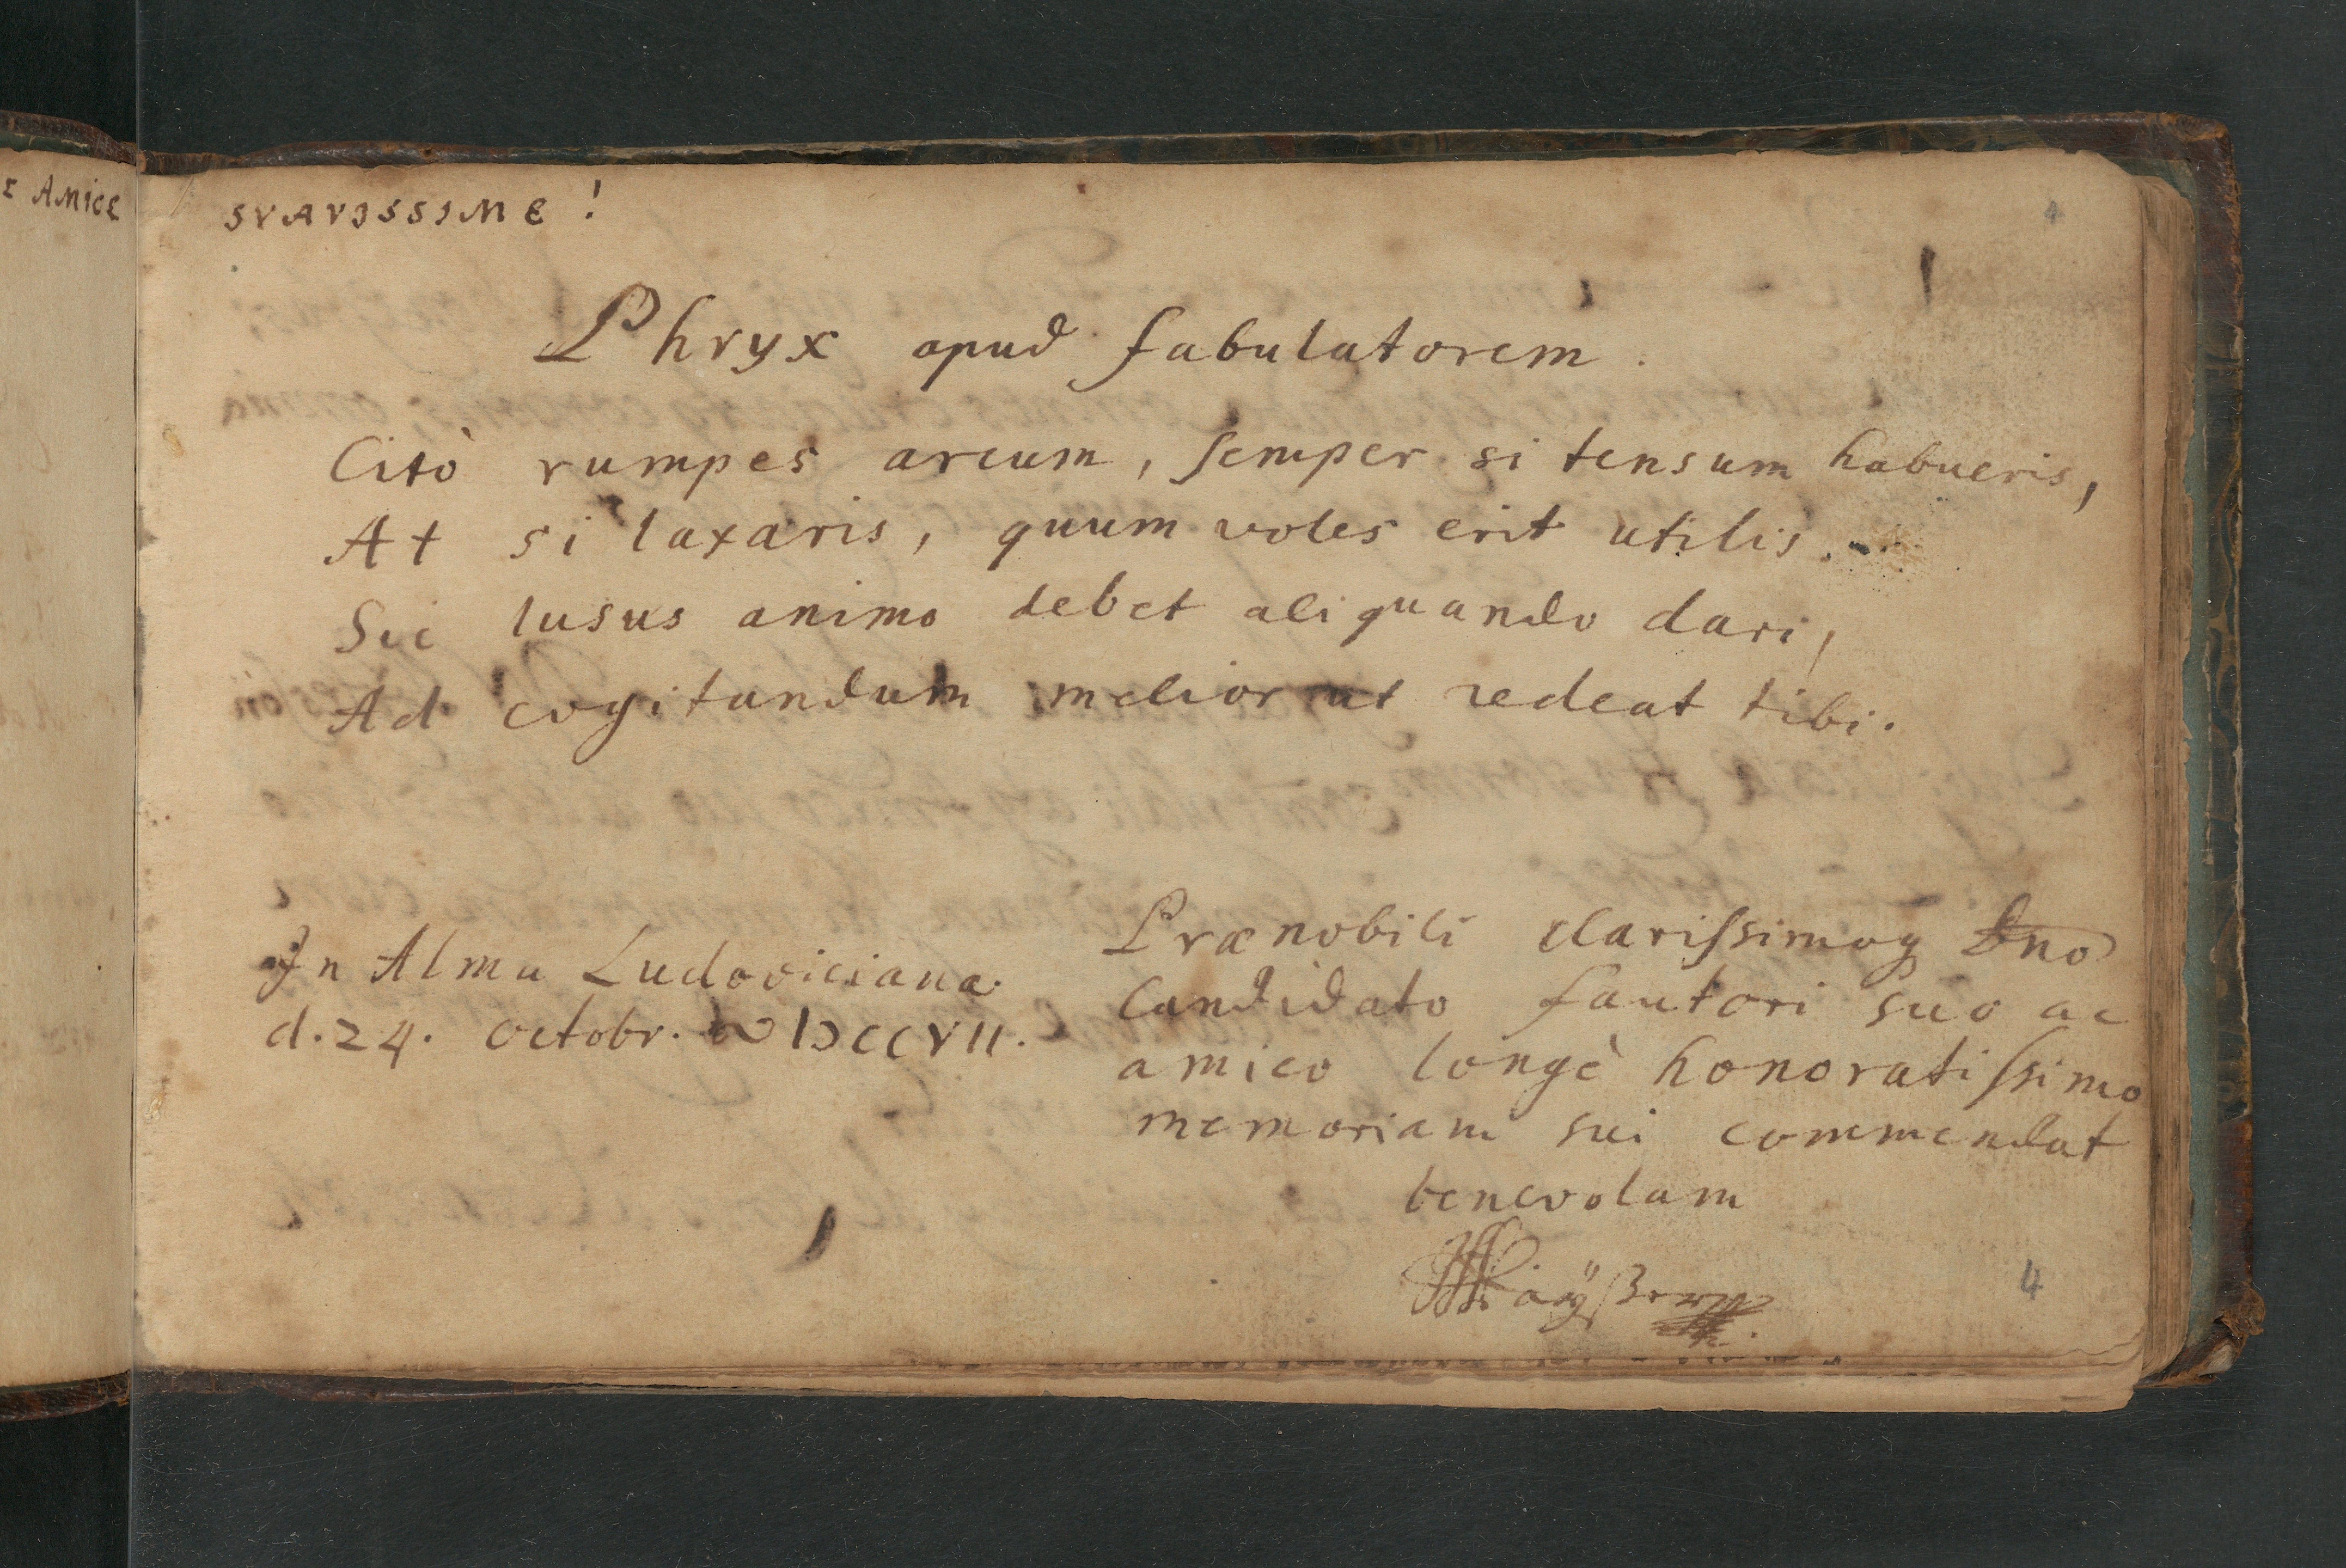 E AMICE
SVAVISSIME!
4
Phryx apud fabulatorem.
Citò rumpes arcum, semper si tensum habueris,
At si laxaris, quum voles erit utilis.
Sic lusus animo debet aliquando dari,
Ad cogitandum melior ut redeat tibi.
In Alma Ludoviciana
d. 24. octobr. ∞ IↃCCVII.
Prænobili clarissimoq Dno
Candidato fautori suo ac
amico longè honoratissimo
memoriam sui commendat
benevolam
4